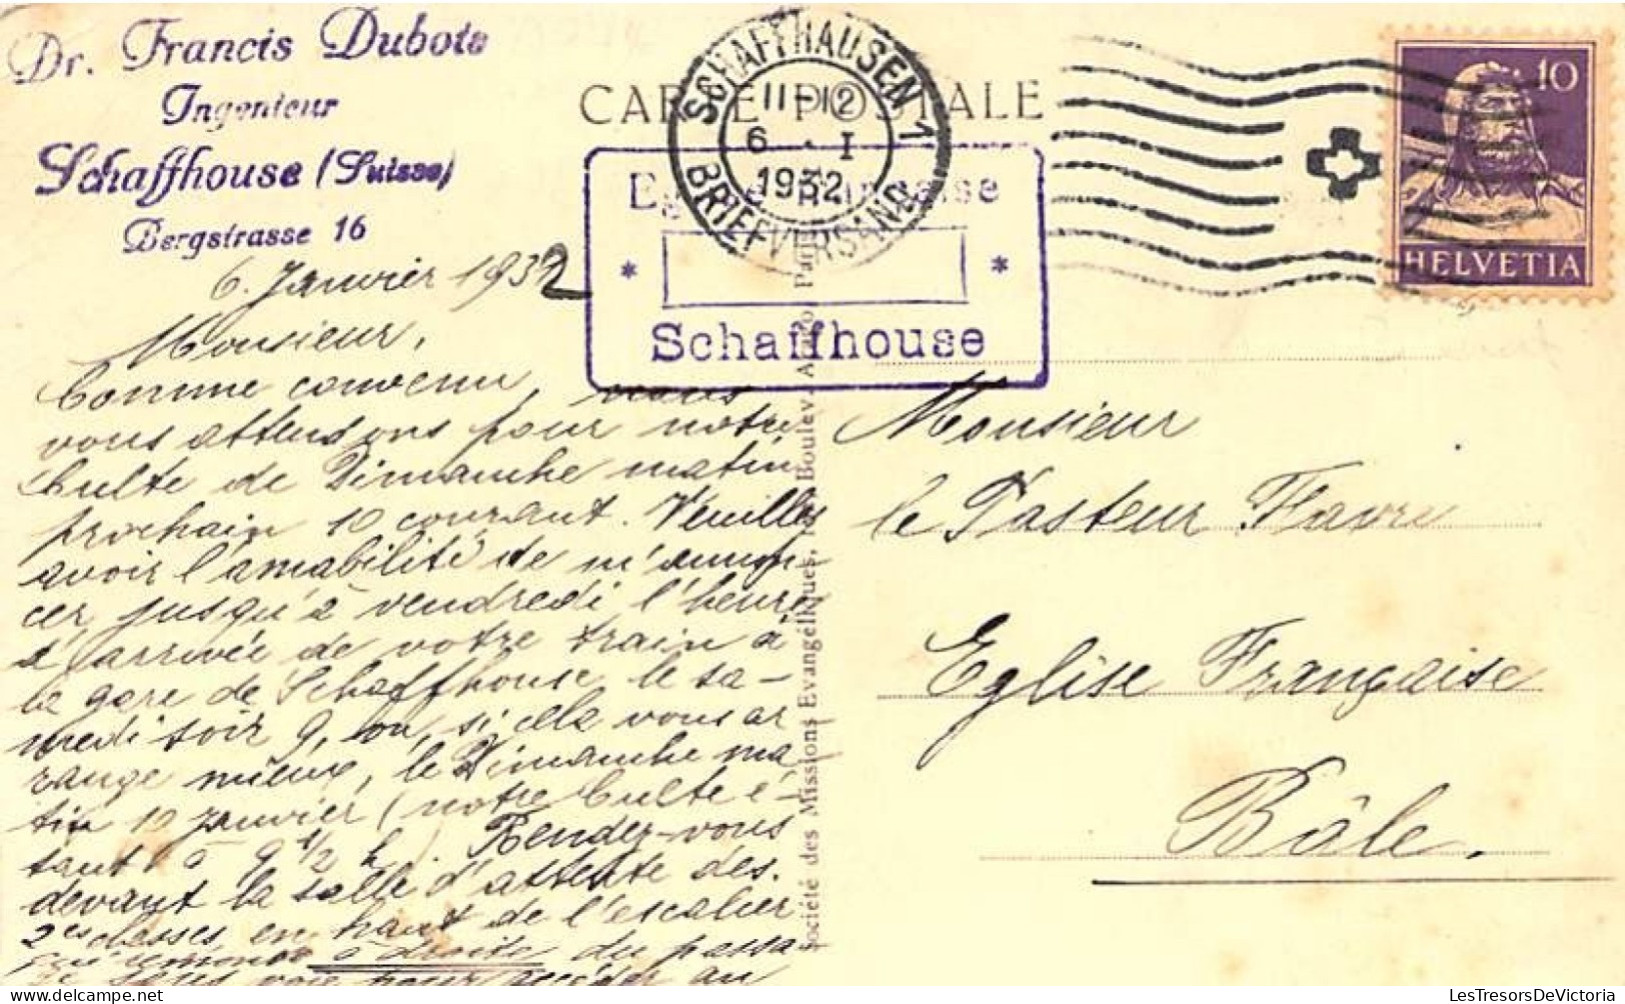 Dr. Francis Dubots
Ingenieur
Schaffhouse (Suisse)
Bergstrasse 16
CARTE POSTALE
SCHAFFHAUSEN 1
11-12
6 . I
1932
BRIEFVERSAND
10
HELVETIA
* *
Schaffhouse
6. Janvier 1932
Monsieur,
Comme convenu, nous
vous attendons pour notre
Culte de Dimanche matin
prochain 10 courant. Veuillez
avoir l'amabilité de m'annon-
cer jusqu'à vendredi l'heure
d'arrivée de votre train à
la gare de Schaffhouse, le sa-
medi soir 9, ou, si cela vous ar
range mieux, le Dimanche ma
tin 10 janvier (notre Culte é-
tant à 9 1/2 h. Rendez-vous
devant la salle d'attente des
2es classes, en haut de l'escalier
à droite du passa
voie pour accéder au
Société des Missions Evangéliques, Boulev. Arago, Paris
Monsieur
le Pasteur Favre
Eglise Française
Bâle.
LesTresorsDeVictoria